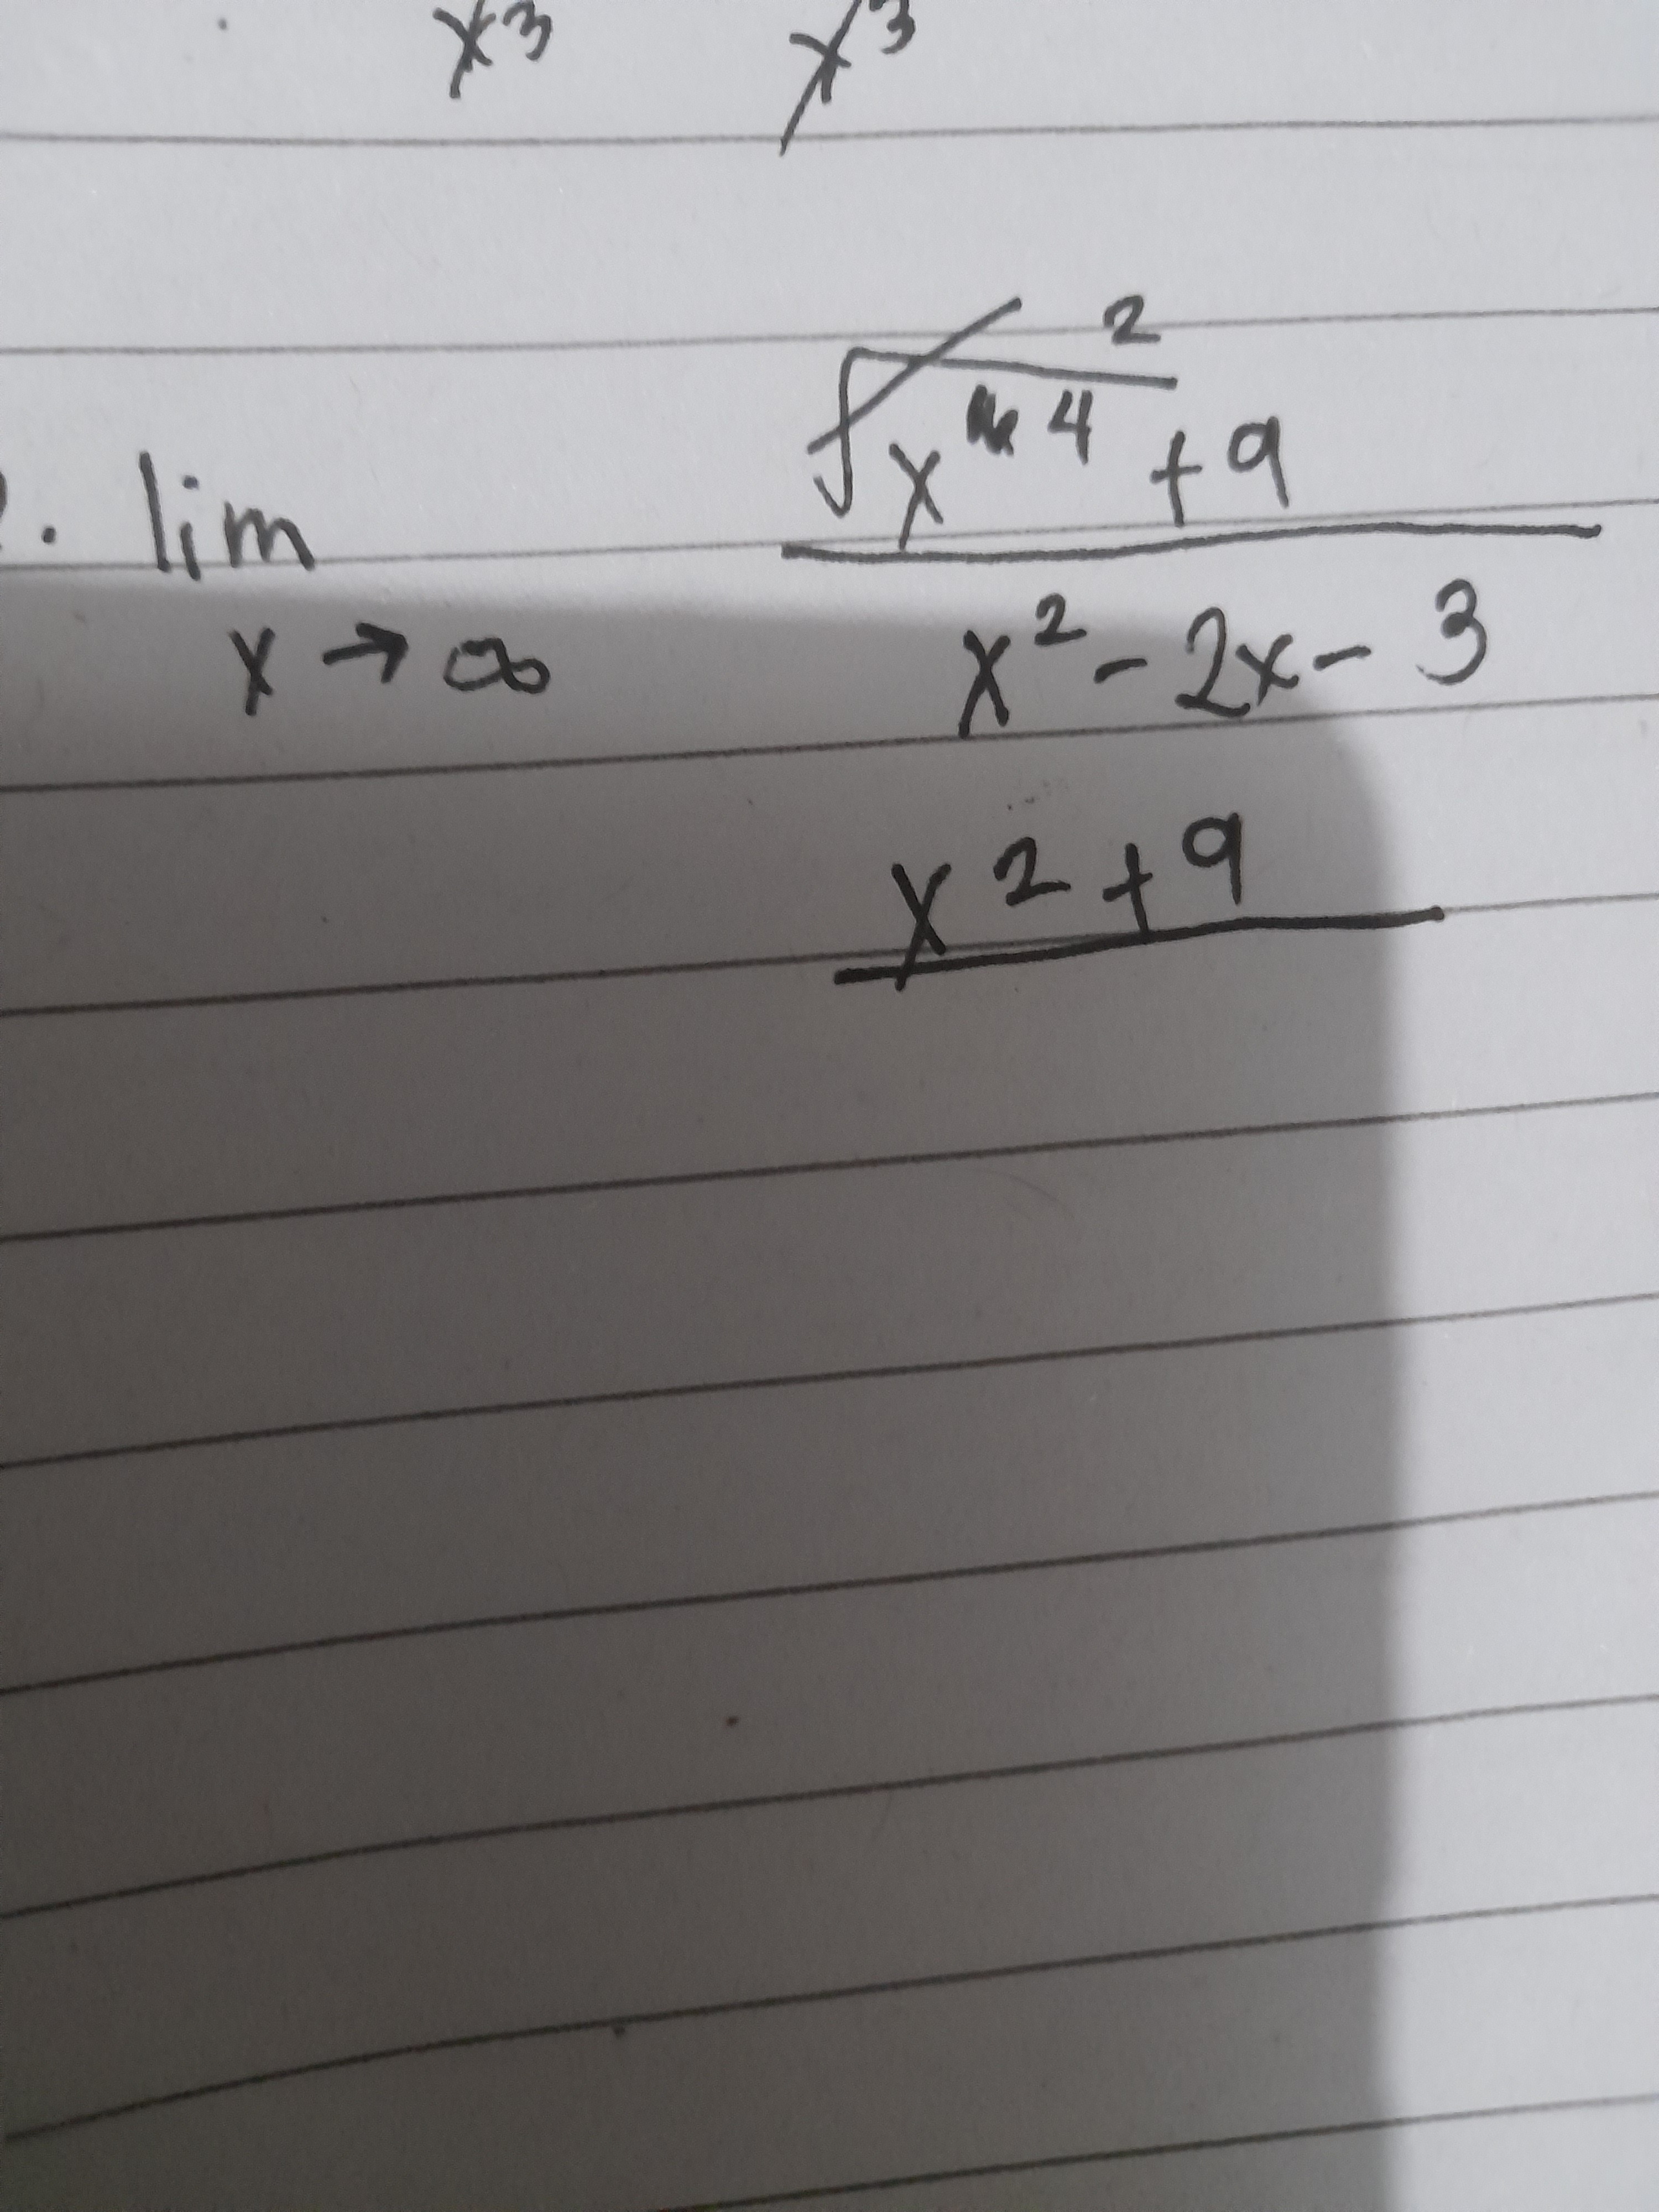 x³ x³
. lim √x⁴ + 9
2
x → ∞ x² - 2x - 3
x² + 9